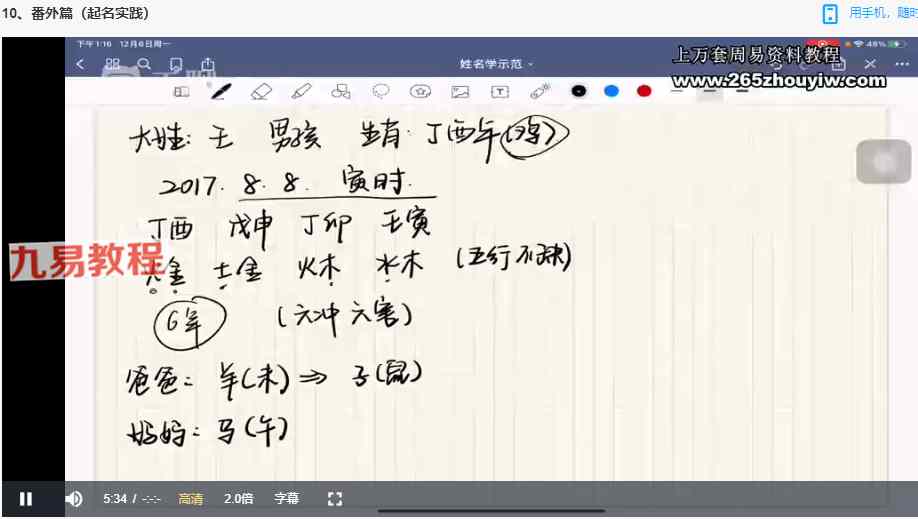 10、番外篇（起名实践）
用手机，随时
下午1:16 12月6日周一
48%
姓名学示范
上万套周易资料教程
www.265zhouyiw.com
大姓: 王 男孩 生肖: 丁酉年
2017. 8. 8. 寅时.
丁酉 戊申 丁卯 壬寅
九易教程
火金 土金 火木 水木 (五行不缺)
6年 (六冲 六害)
爸爸: 羊(未) ⇒ 子(鼠)
妈妈: 马(午)
5:34 / -:-:- 高清 2.0倍 字幕